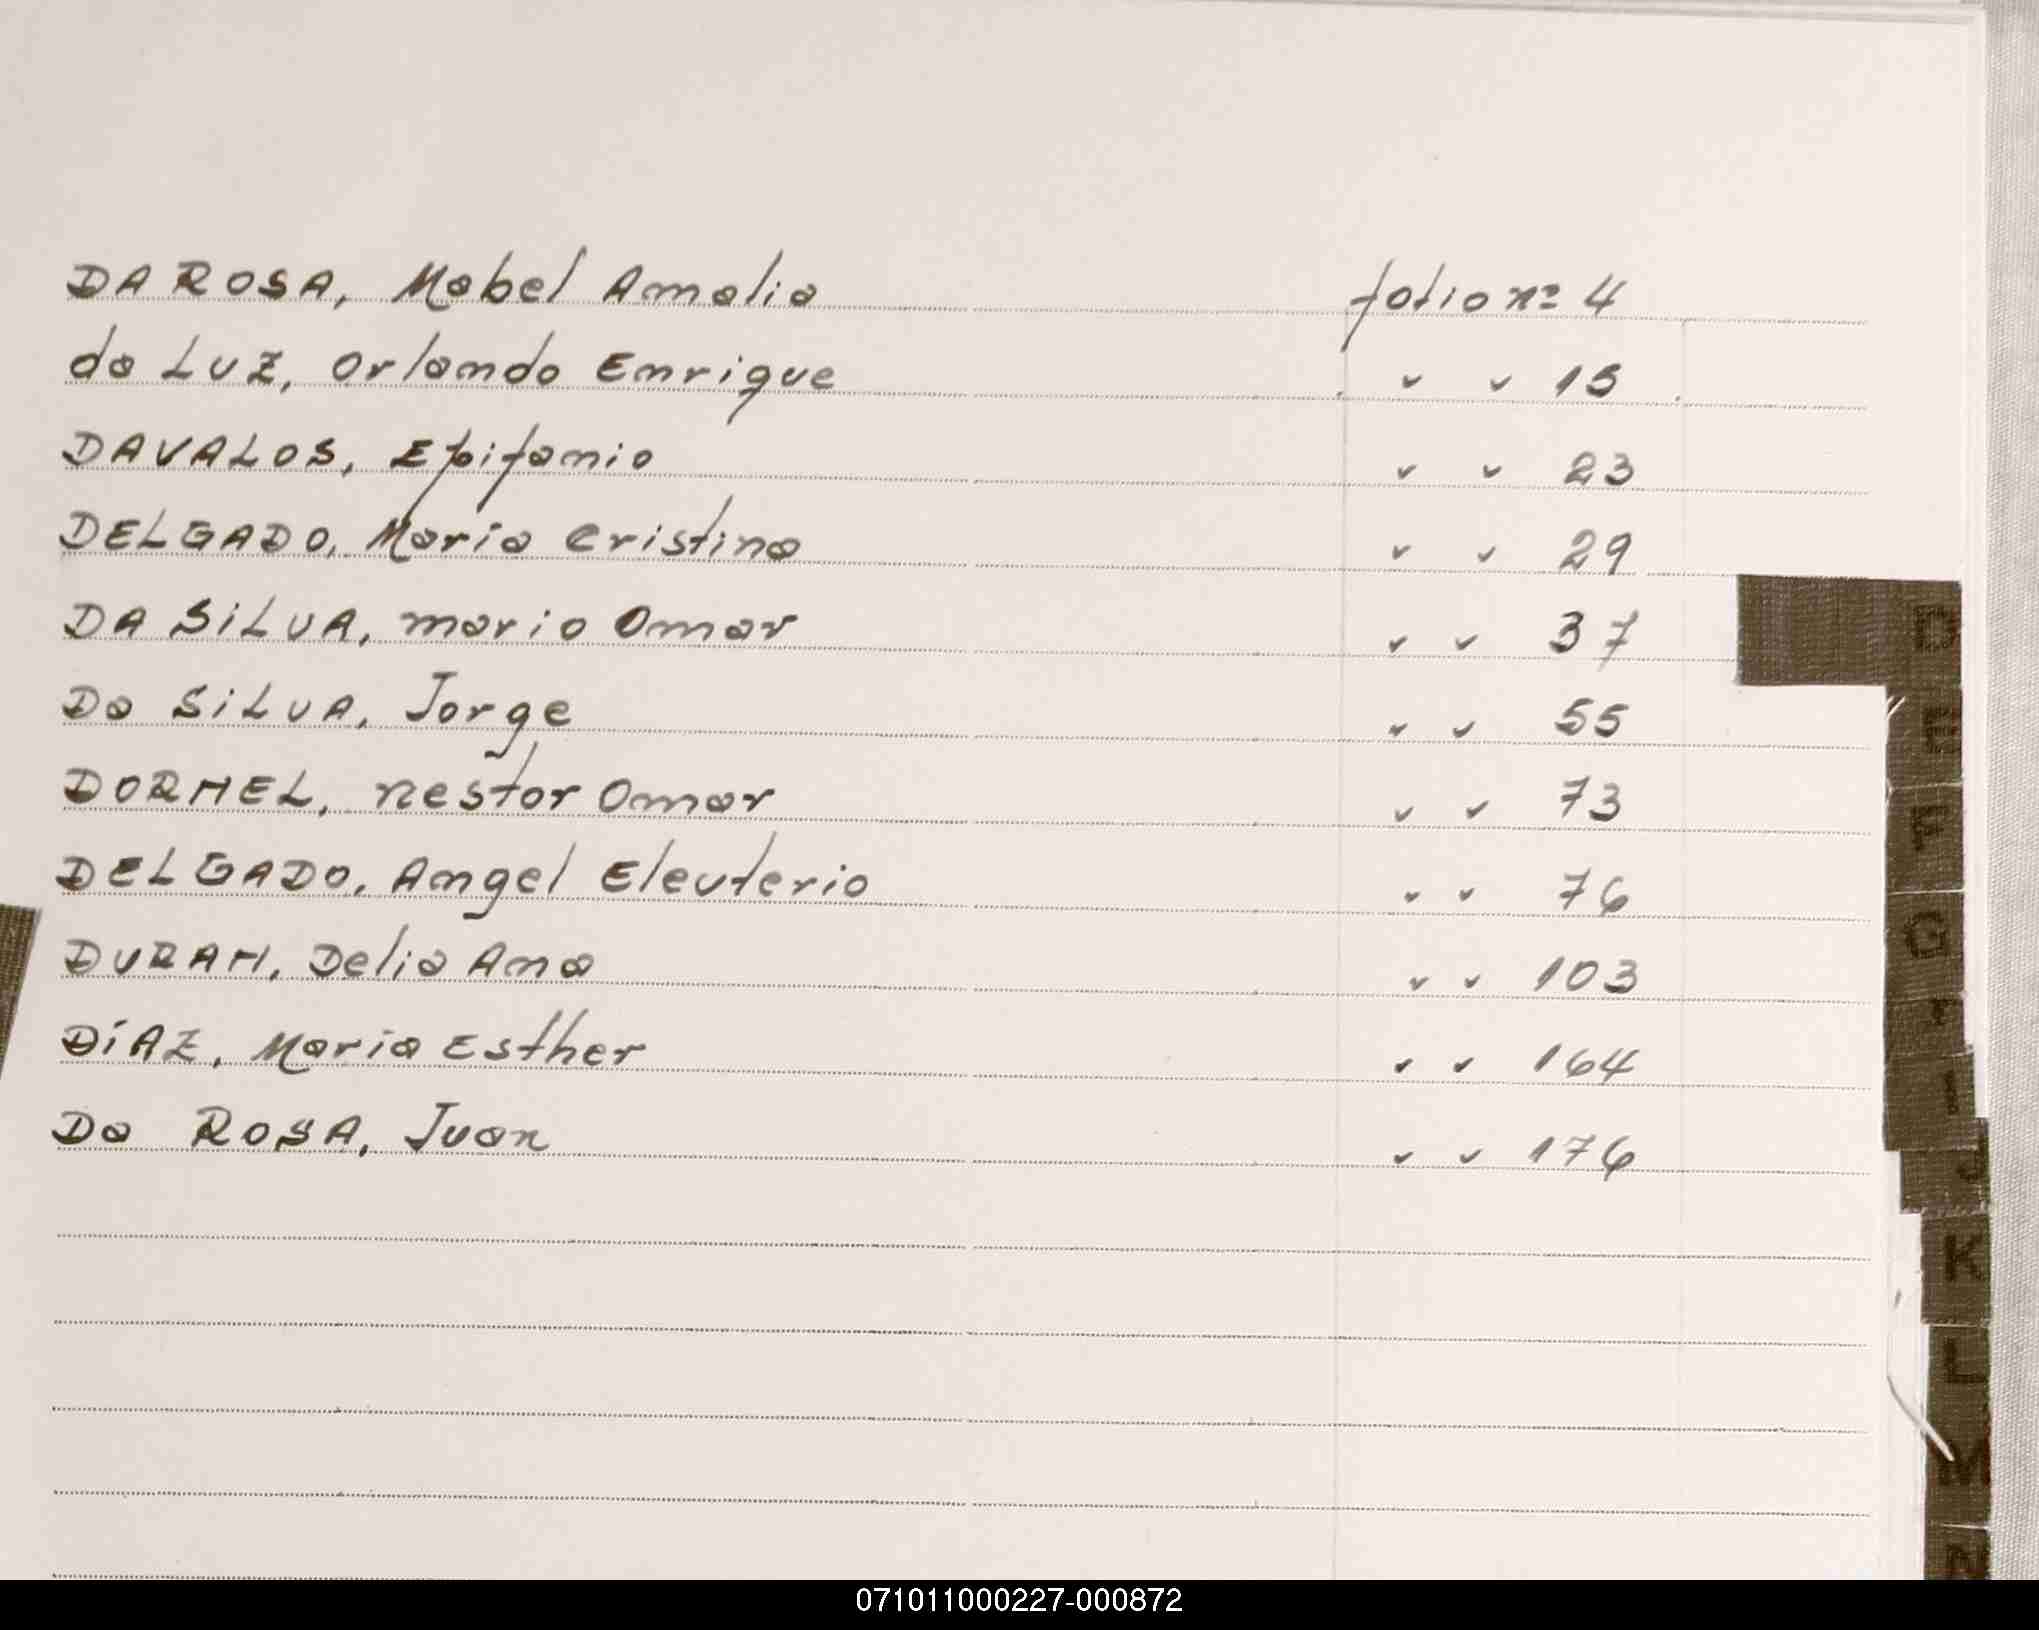 DA ROSA, Mabel Amalia folio nº 4
da LUZ, Orlando Enrique " " 15
DAVALOS, Epifanio " " 23
DELGADO, Maria Cristina " " 29
DA SiLVA, mario Omar " " 37
Da SiLVA, Jorge " " 55
DORNEL, nestor Omar " " 73
DELGADO, Angel Eleuterio " " 76
DURAN, Delia Ana " " 103
DíAZ, Maria Esther " " 164
Da ROSA, Juan " " 176
D
E
F
G
I
J
K
L
M
N
071011000227-000872